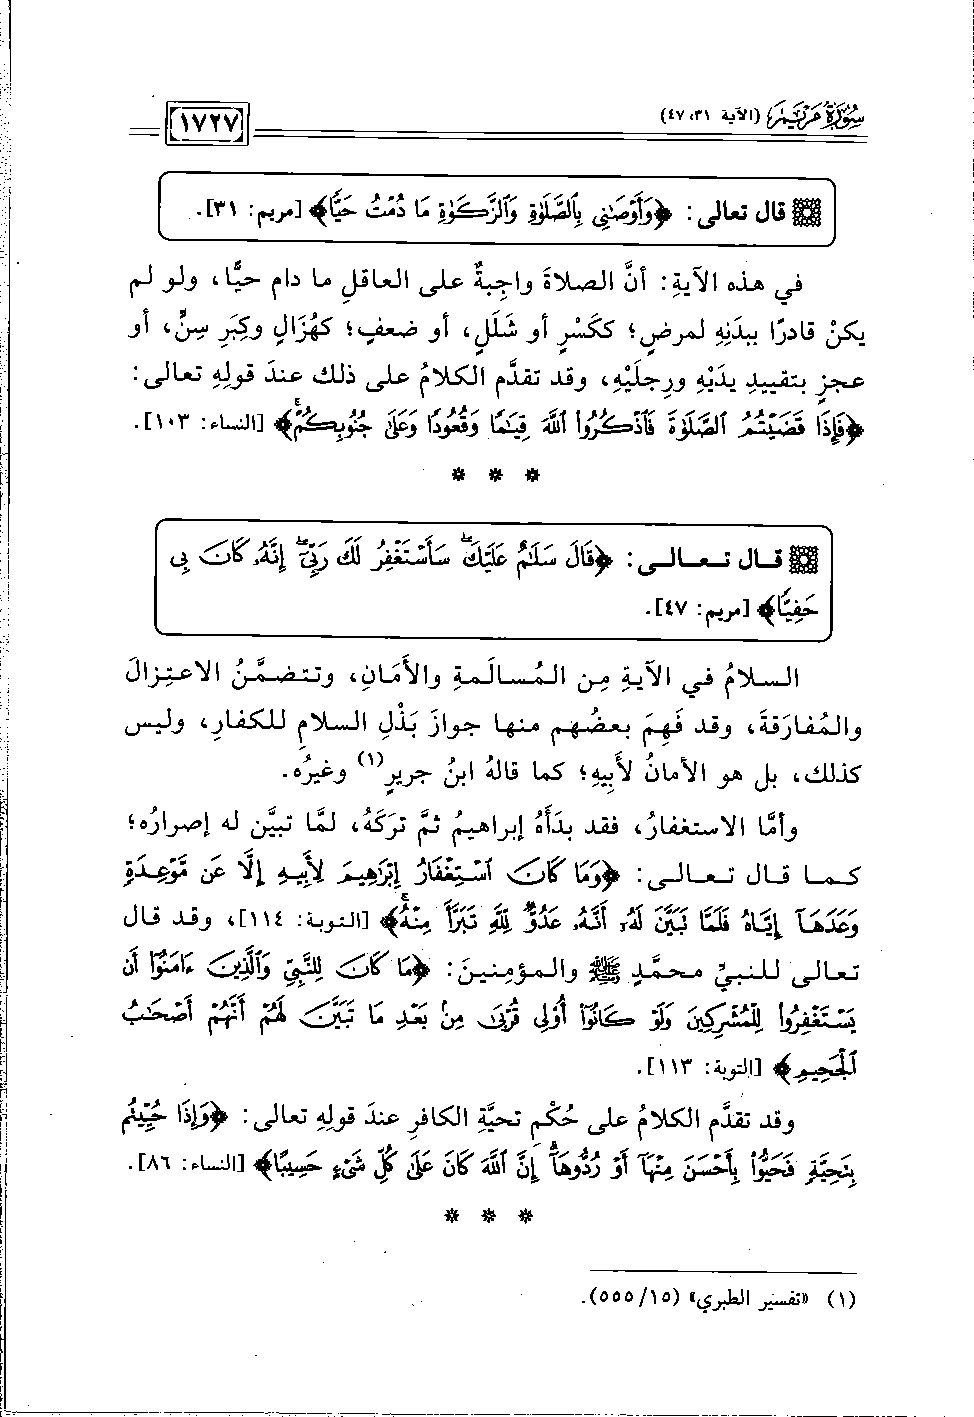 سُورَةُ مَرْيَمَ (الآية ٣١، ٤٧)
١٧٢٧
قال تعالى: ﴿وَأَوْصَٰنِى بِٱلصَّلَوٰةِ وَٱلزَّكَوٰةِ مَا دُمْتُ حَيًّا﴾ [مريم: ٣١].
في هذه الآيةِ: أنَّ الصلاةَ واجِبةٌ على العاقلِ ما دام حيًّا، ولو لم
يكنْ قادرًا ببدَنِهِ لمرضٍ؛ ككَسْرٍ أو شَلَلٍ، أو ضعفٍ؛ كهُزَالٍ وكِبَرِ سِنٍّ، أو
عجزٍ بتقييدِ يدَيْهِ ورِجلَيْهِ، وقد تقدَّم الكلامُ على ذلك عندَ قولِهِ تعالى:
﴿فَإِذَا قَضَيْتُمُ ٱلصَّلَوٰةَ فَٱذْكُرُوا۟ ٱللَّهَ قِيَٰمًا وَقُعُودًا وَعَلَىٰ جُنُوبِكُمْ﴾ [النساء: ١٠٣].
* * *
قـال تـعـالـى: ﴿قَالَ سَلَٰمٌ عَلَيْكَ ۖ سَأَسْتَغْفِرُ لَكَ رَبِّىٓ ۖ إِنَّهُۥ كَانَ بِى
حَفِيًّا﴾ [مريم: ٤٧].
السلامُ في الآيةِ مِن المُسالَمةِ والأَمَانِ، وتتضمَّنُ الاعتِزالَ
والمُفارَقةَ، وقد فَهِمَ بعضُهم منها جوازَ بَذْلِ السلامِ للكفارِ، وليس
كذلك، بل هو الأمانُ لأبِيهِ؛ كما قالهُ ابنُ جريرٍ(١) وغيرُه.
وأمَّا الاستغفارُ، فقد بدَأَهُ إبراهيمُ ثمَّ تركَهُ، لمَّا تبيَّن له إصرارُه؛
كـمـا قـال تـعـالـى: ﴿وَمَا كَانَ ٱسْتِغْفَارُ إِبْرَٰهِيمَ لِأَبِيهِ إِلَّا عَن مَّوْعِدَةٍ
وَعَدَهَآ إِيَّاهُ فَلَمَّا تَبَيَّنَ لَهُۥٓ أَنَّهُۥ عَدُوٌّ لِّلَّهِ تَبَرَّأَ مِنْهُ﴾ [التوبة: ١١٤]، وقد قال
تعالى للنبيِّ محمَّدٍ ﷺ والمؤمِنينَ: ﴿مَا كَانَ لِلنَّبِىِّ وَٱلَّذِينَ ءَامَنُوٓا۟ أَن
يَسْتَغْفِرُوا۟ لِلْمُشْرِكِينَ وَلَوْ كَانُوٓا۟ أُو۟لِى قُرْبَىٰ مِنۢ بَعْدِ مَا تَبَيَّنَ لَهُمْ أَنَّهُمْ أَصْحَٰبُ
ٱلْجَحِيمِ﴾ [التوبة: ١١٣].
وقد تقدَّم الكلامُ على حُكْمِ تحيَّةِ الكافرِ عندَ قولِهِ تعالى: ﴿وَإِذَا حُيِّيتُم
بِتَحِيَّةٍ فَحَيُّوا۟ بِأَحْسَنَ مِنْهَآ أَوْ رُدُّوهَآ ۗ إِنَّ ٱللَّهَ كَانَ عَلَىٰ كُلِّ شَىْءٍ حَسِيبًا﴾ [النساء: ٨٦].
* * *
(١) «تفسير الطبري» (١٥/ ٥٥٥).